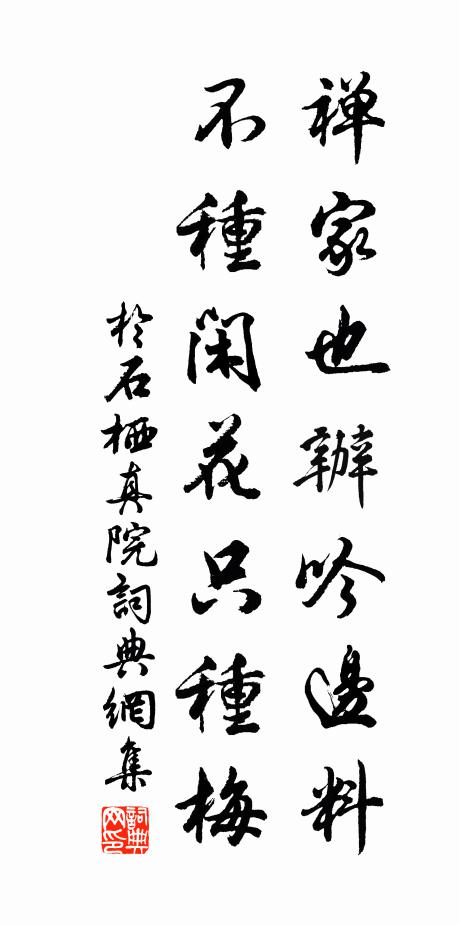 禅家也辦吟邊料
不種閑花只種梅
於石栖真院詞典網集
詞典网印